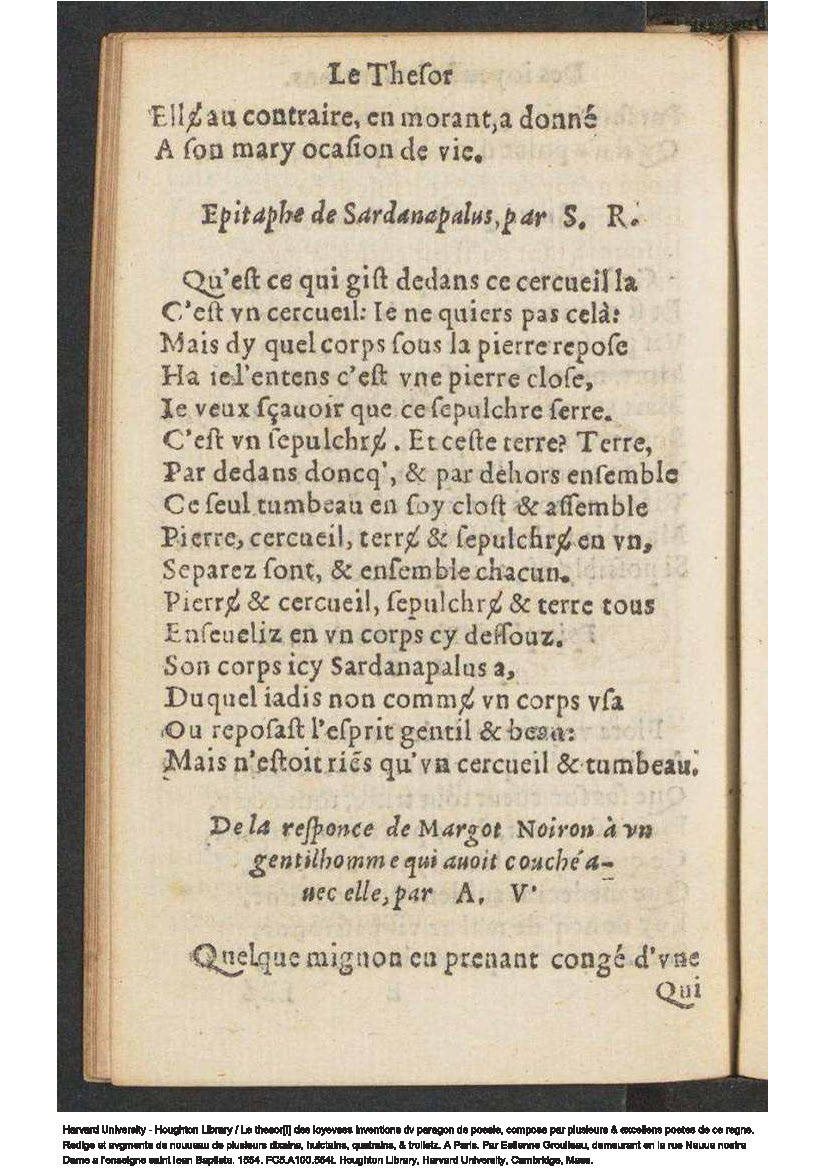 Le Theſor
Ellɇ au contraire, en morant, a donné
A ſon mary ocaſion de vie.
Epitaphe de Sardanapalus, par S. R.
Qu'eſt ce qui giſt dedans ce cercueil la
C'eſt vn cercueil: Ie ne quiers pas celà:
Mais dy quel corps ſous la pierre repoſe
Ha ie l'entens c'eſt vne pierre cloſe,
Ie veux ſçauoir que ce ſepulchre ſerre.
C'eſt vn ſepulchrɇ . Et ceſte terre? Terre,
Par dedans doncq', & par dehors enſemble
Ce ſeul tumbeau en ſoy cloſt & aſſemble
Pierre, cercueil, terrɇ & ſepulchrɇ en vn,
Separez ſont, & enſemble chacun.
Pierrɇ & cercueil, ſepulchrɇ & terre tous
Enſeueliz en vn corps cy deſſouz.
Son corps icy Sardanapalus a,
Duquel iadis non commɇ vn corps vſa
Ou repoſaſt l'eſprit gentil & beau:
Mais n'eſtoit riẽs qu'vn cercueil & tumbeau.
De la reſponce de Margot Noiron à vn
gentilhomme qui auoit couché a-
uec elle, par A. V.
Quelque mignon en prenant congé d'vne
Qui
Harvard University - Houghton Library / Le thesor[i] des ioyevses inventions dv paragon de poesie, compose par plusieurs & excellens poetes de ce regne.
Redige et avgmente de nouueau de plusieurs dixains, huictains, quatrains, & trolletz. A Paris. Par Estienne Groulleau, demeurant en la rue Neuue nostre
Dame a l'enseigne saint Iean Baptiste. 1554. FC5.A100.554t. Houghton Library, Harvard University, Cambridge, Mass.